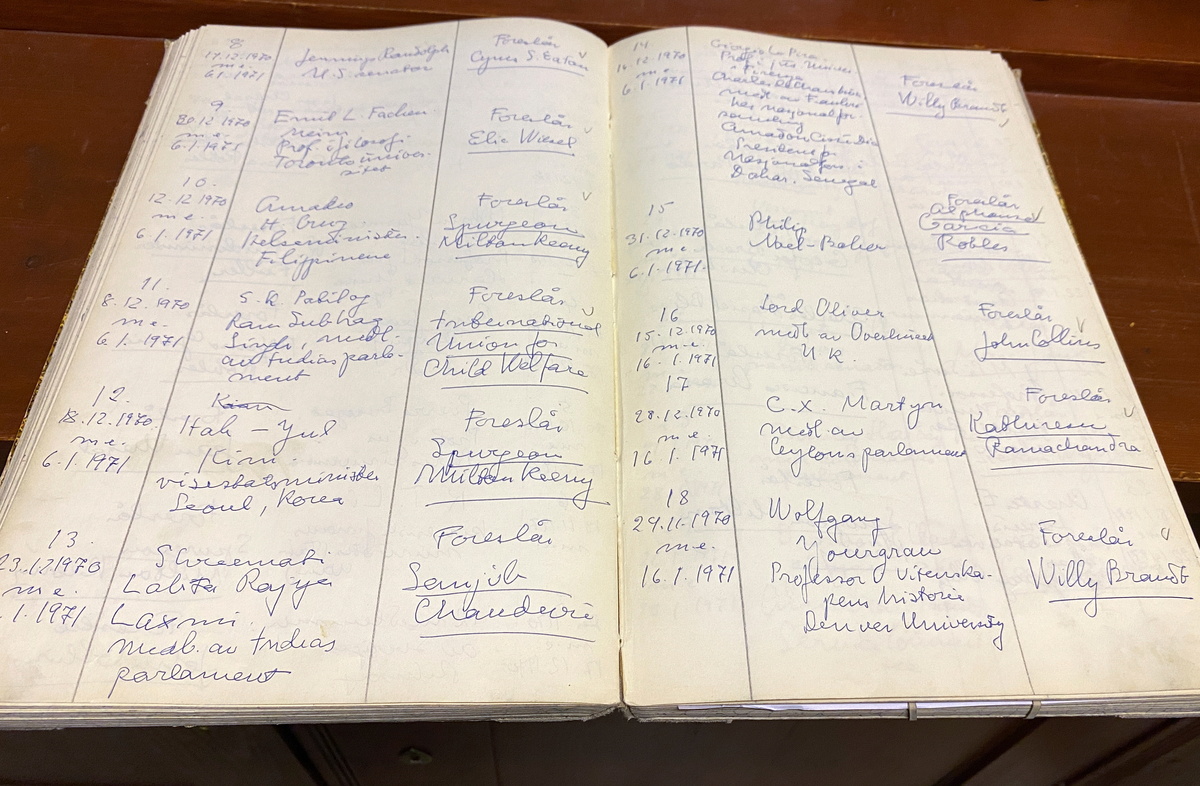 8
17.12.1970
m.e.
6.1.1971
Jennings Randolph
U.S. senator
Foreslår
Cyrus S. Eaton
9
30.12.1970
m.e.
6.1.1971
Emil L. Fackenheim
Prof. i filosofi
Toronto univer-
sitet
Foreslår
Elie Wiesel
10.
12.12.1970
m.e.
6.1.1971
Amadeo
H. Cruz
Helseminister
Filippinene
Foreslår
Spurgeon
Milton Keeny
11.
8.12.1970
m.e.
6.1.1971
S.K. Patil og
Ram Subhag
Singh, medl.
av Indias parla-
ment
Foreslår
International
Union for
Child Welfare
12.
18.12.1970
m.e.
6.1.1971
Hak - Yul
Kim
visestatsminister
Seoul, Korea
Foreslår
Spurgeon
Milton Keeny
13.
23.12.1970
m.e.
1.1971
Shreemati
Lalita Rajya
Laxmi.
Medl. av Indias
parlament
Foreslår
Sanjib
Chaudhuri
14.
m.e.
6.1.1971
Giorgio La Pira
Prof. i jus Univer.
Firenze
medl. av Frankri-
kes nasjonalfor-
samling
Amadou Cissé Dia
President i
Nasjonalfors. i
Dakar, Senegal
Foreslår
Willy Brandt
15
31.12.1970
m.e.
6.1.1971.
Philip
Noel-Baker
Foreslår
Alphonso
Garcia
Robles
16
15.12.1970
m.e.
16.1.1971
Lord Oliver
medl. av Overhuset
U.K.
Foreslår
John Collins
17
28.12.1970
m.e.
16.1.1971
C.X. Martyn
medl. av
Ceylons parlament
Foreslår
Kathiresu
Ramachandra
18
29.11.1970
m.e.
16.1.1971
Wolfgang
Yourgrau
Professor i vitenska-
pens historie
Denver University
Foreslår
Willy Brandt